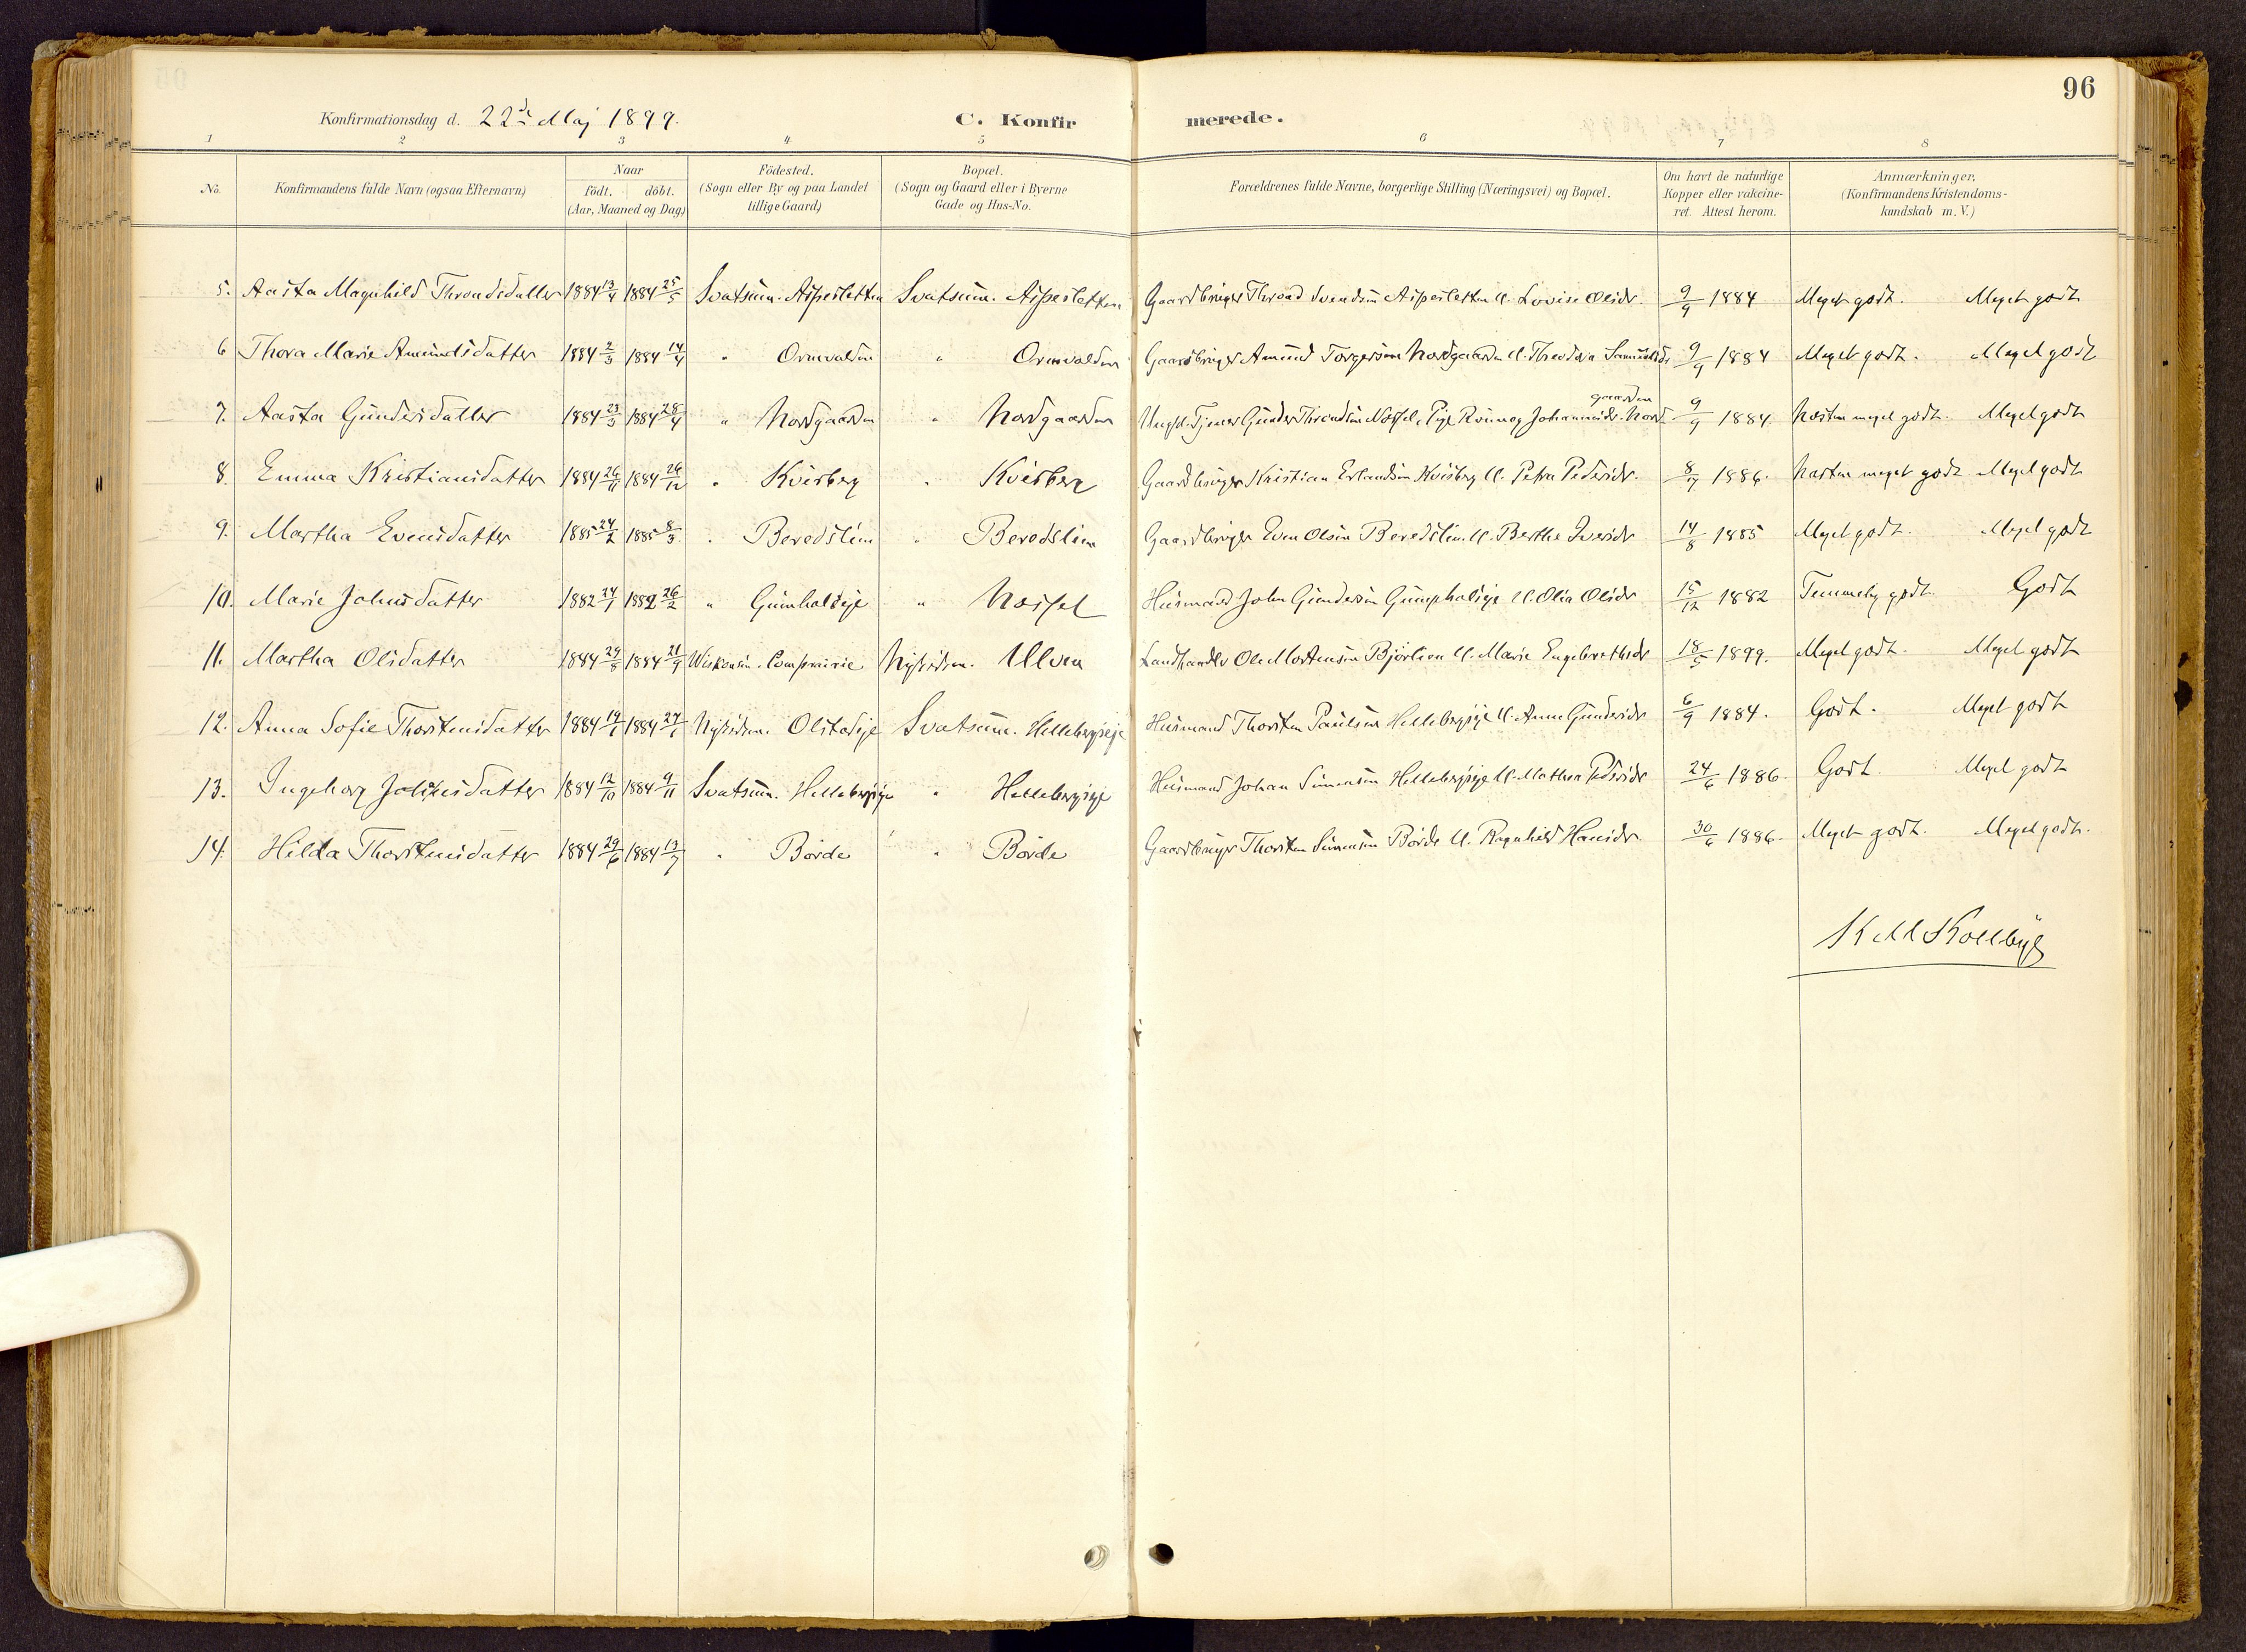 96
Konfirmationsdag d. 22de Maj 1899.
C. Konfirmerede.
1 2 3 4 5 6 7 8
No. Konfirmandens fulde Navn (ogsaa Efternavn) Naar født. døbt. (Aar, Maaned og Dag) Födested. (Sogn eller By og paa Landet tillige Gaard) Bopæl. (Sogn og Gaard eller i Byerne Gade og Hus-No. Forældrenes fulde Navne, borgerlige Stilling (Næringsvei) og Bopæl. Om havt de naturlige Kopper eller vakcineret. Attest herom. Anmærkninger. (Konfirmandens Kristendomskundskab m. V.)
5. Aasta Magnhild Throndsdatter 1884 13/4 1884 25/5 Svatsum. Aspesletten Svatsum. Aspesletten Gaardbruger Thrond Svendsen Aspesletten & Lovise Olsdr. 9/9 1884 Meget godt. Meget godt
6 Thora Marie Amundsdatter 1884 2/3 1884 14/4 " Ormvolden " Ormvolden Gaardbruger Amund Torgersen Nordgaarden & Theodora Samuelsdr 9/9 1884 Meget godt. Meget godt
7. Aasta Gundersdatter 1884 23/3 1884 28/4 " Nordgaarden " Nordgaarden Ungk. Tjener Gunder Throndsen Nossel, Pige Rønnog Johannesdr. Nordgaarden 9/9 1884. Næsten meget godt. Meget godt
8. Emma Kristiansdatter 1884 26/11 1884 26/12 " Kvisberg " Kvisberg Gaardbruger Kristian Erlandsen Kvisberg & Petra Pedersdr. 8/7 1886. Næsten meget godt Meget godt
9. Martha Evensdatter 1885 24/2 1885 8/3. " Beredslien " Beredslien Gaardbruger Even Olsen Beredslien & Berthe Iversdr 14/8 1885 Meget godt. Meget godt
10. Marie Johnsdatter 1882 24/1 1882 26/2 " " Nossel Husmand John Gundersen & Olia Olsdr 15/12 1882 Temmelig godt. Godt
11. Martha Olsdatter 1884 24/8 1884 21/9 Wiskonsin. Comprairie Nykirken. Ulven Landhandler Ole Mortensen Bjørlien & Marie Engebrethsdr 18/5 1899. Meget godt. Meget godt
12. Anna Sofie Thorstensdatter 1884 19/1 1884 27/1 Nykirken. Olstadeje Svatsum. Hellebergseje Husmand Thorsten Paulsen Hellebergseje & Anne Gundersdr 6/9 1884. Godt. Meget godt
13. Ingeborg Johansdatter 1884 12/10 1884 9/11 Svatsum. Hellebergseje " Hellebergseje Husmand Johan Simensen Hellebergseje & Mathea Pedersdr 24/6 1886. Godt. Meget godt
14. Hilda Thorstensdatter 1884 29/6 1884 13/7 " Børde " Børde Gaardbruger Thorsten Simensen Børde & Ragnhild Hansdr. 30/6 1886. Meget godt. Meget godt.